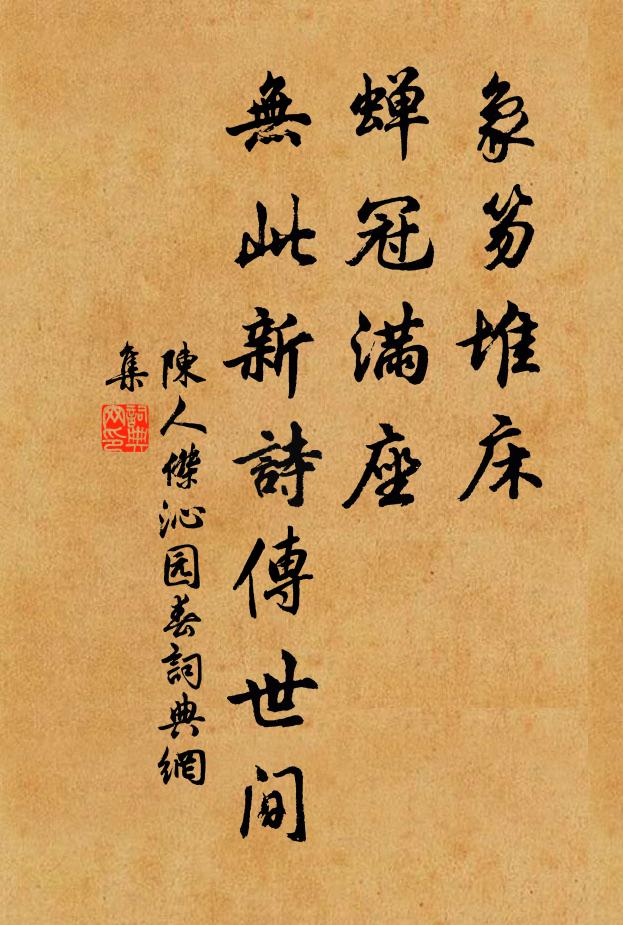 象笏堆床
蝉冠满座
無此新詩傳世间
陳人傑沁园春詞典網
集
詞典
网印